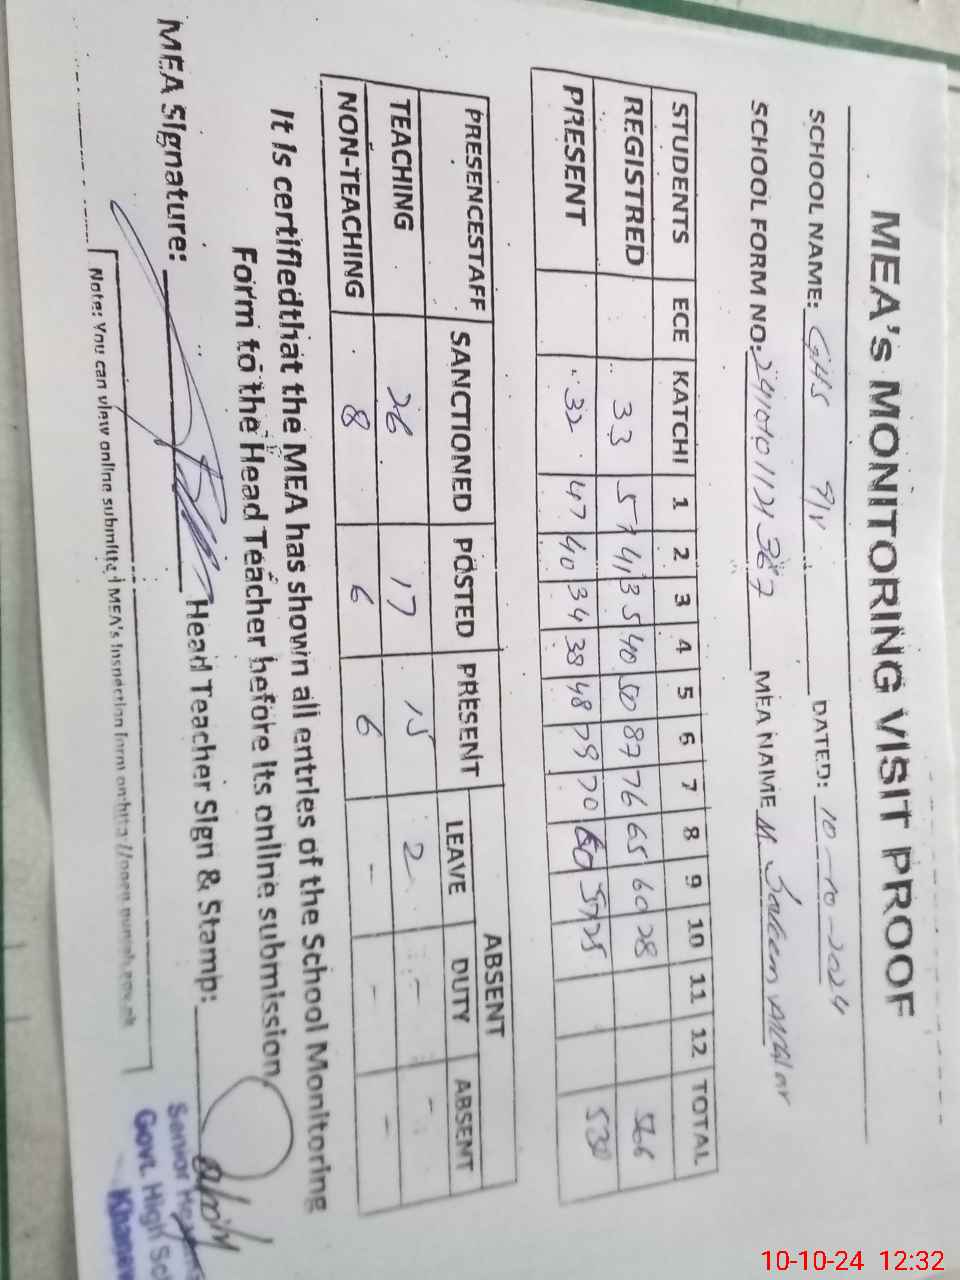 MEA's MONITORING VISIT PROOF
SCHOOL NAME: GHS 9/V DATED: 10-10-2024
SCHOOL FORM NO: 2410101121367 MEA NAME M. Saleem
STUDENTS ECE KATCHI 1 2 3 4 5 6 7 8 9 10 11 12 TOTAL
REGISTRED 33 51 41 35 40 50 87 76 65 60 28 566
PRESENT 32 47 40 34 38 48 79 70 60 57 25 530
PRESENCESTAFF SANCTIONED POSTED PRESENT ABSENT
LEAVE DUTY ABSENT
TEACHING 26 17 15 2 - -
NON-TEACHING 8 6 6 - - -
It is certifiedthat the MEA has shown all entries of the School Monitoring
Form to the Head Teacher before its online submission.
MEA Signature: Head Teacher Sign & Stamp:
Senior
Govt. High
Note: You can view online submitted MEA's Inspection form on
10-10-24 12:32